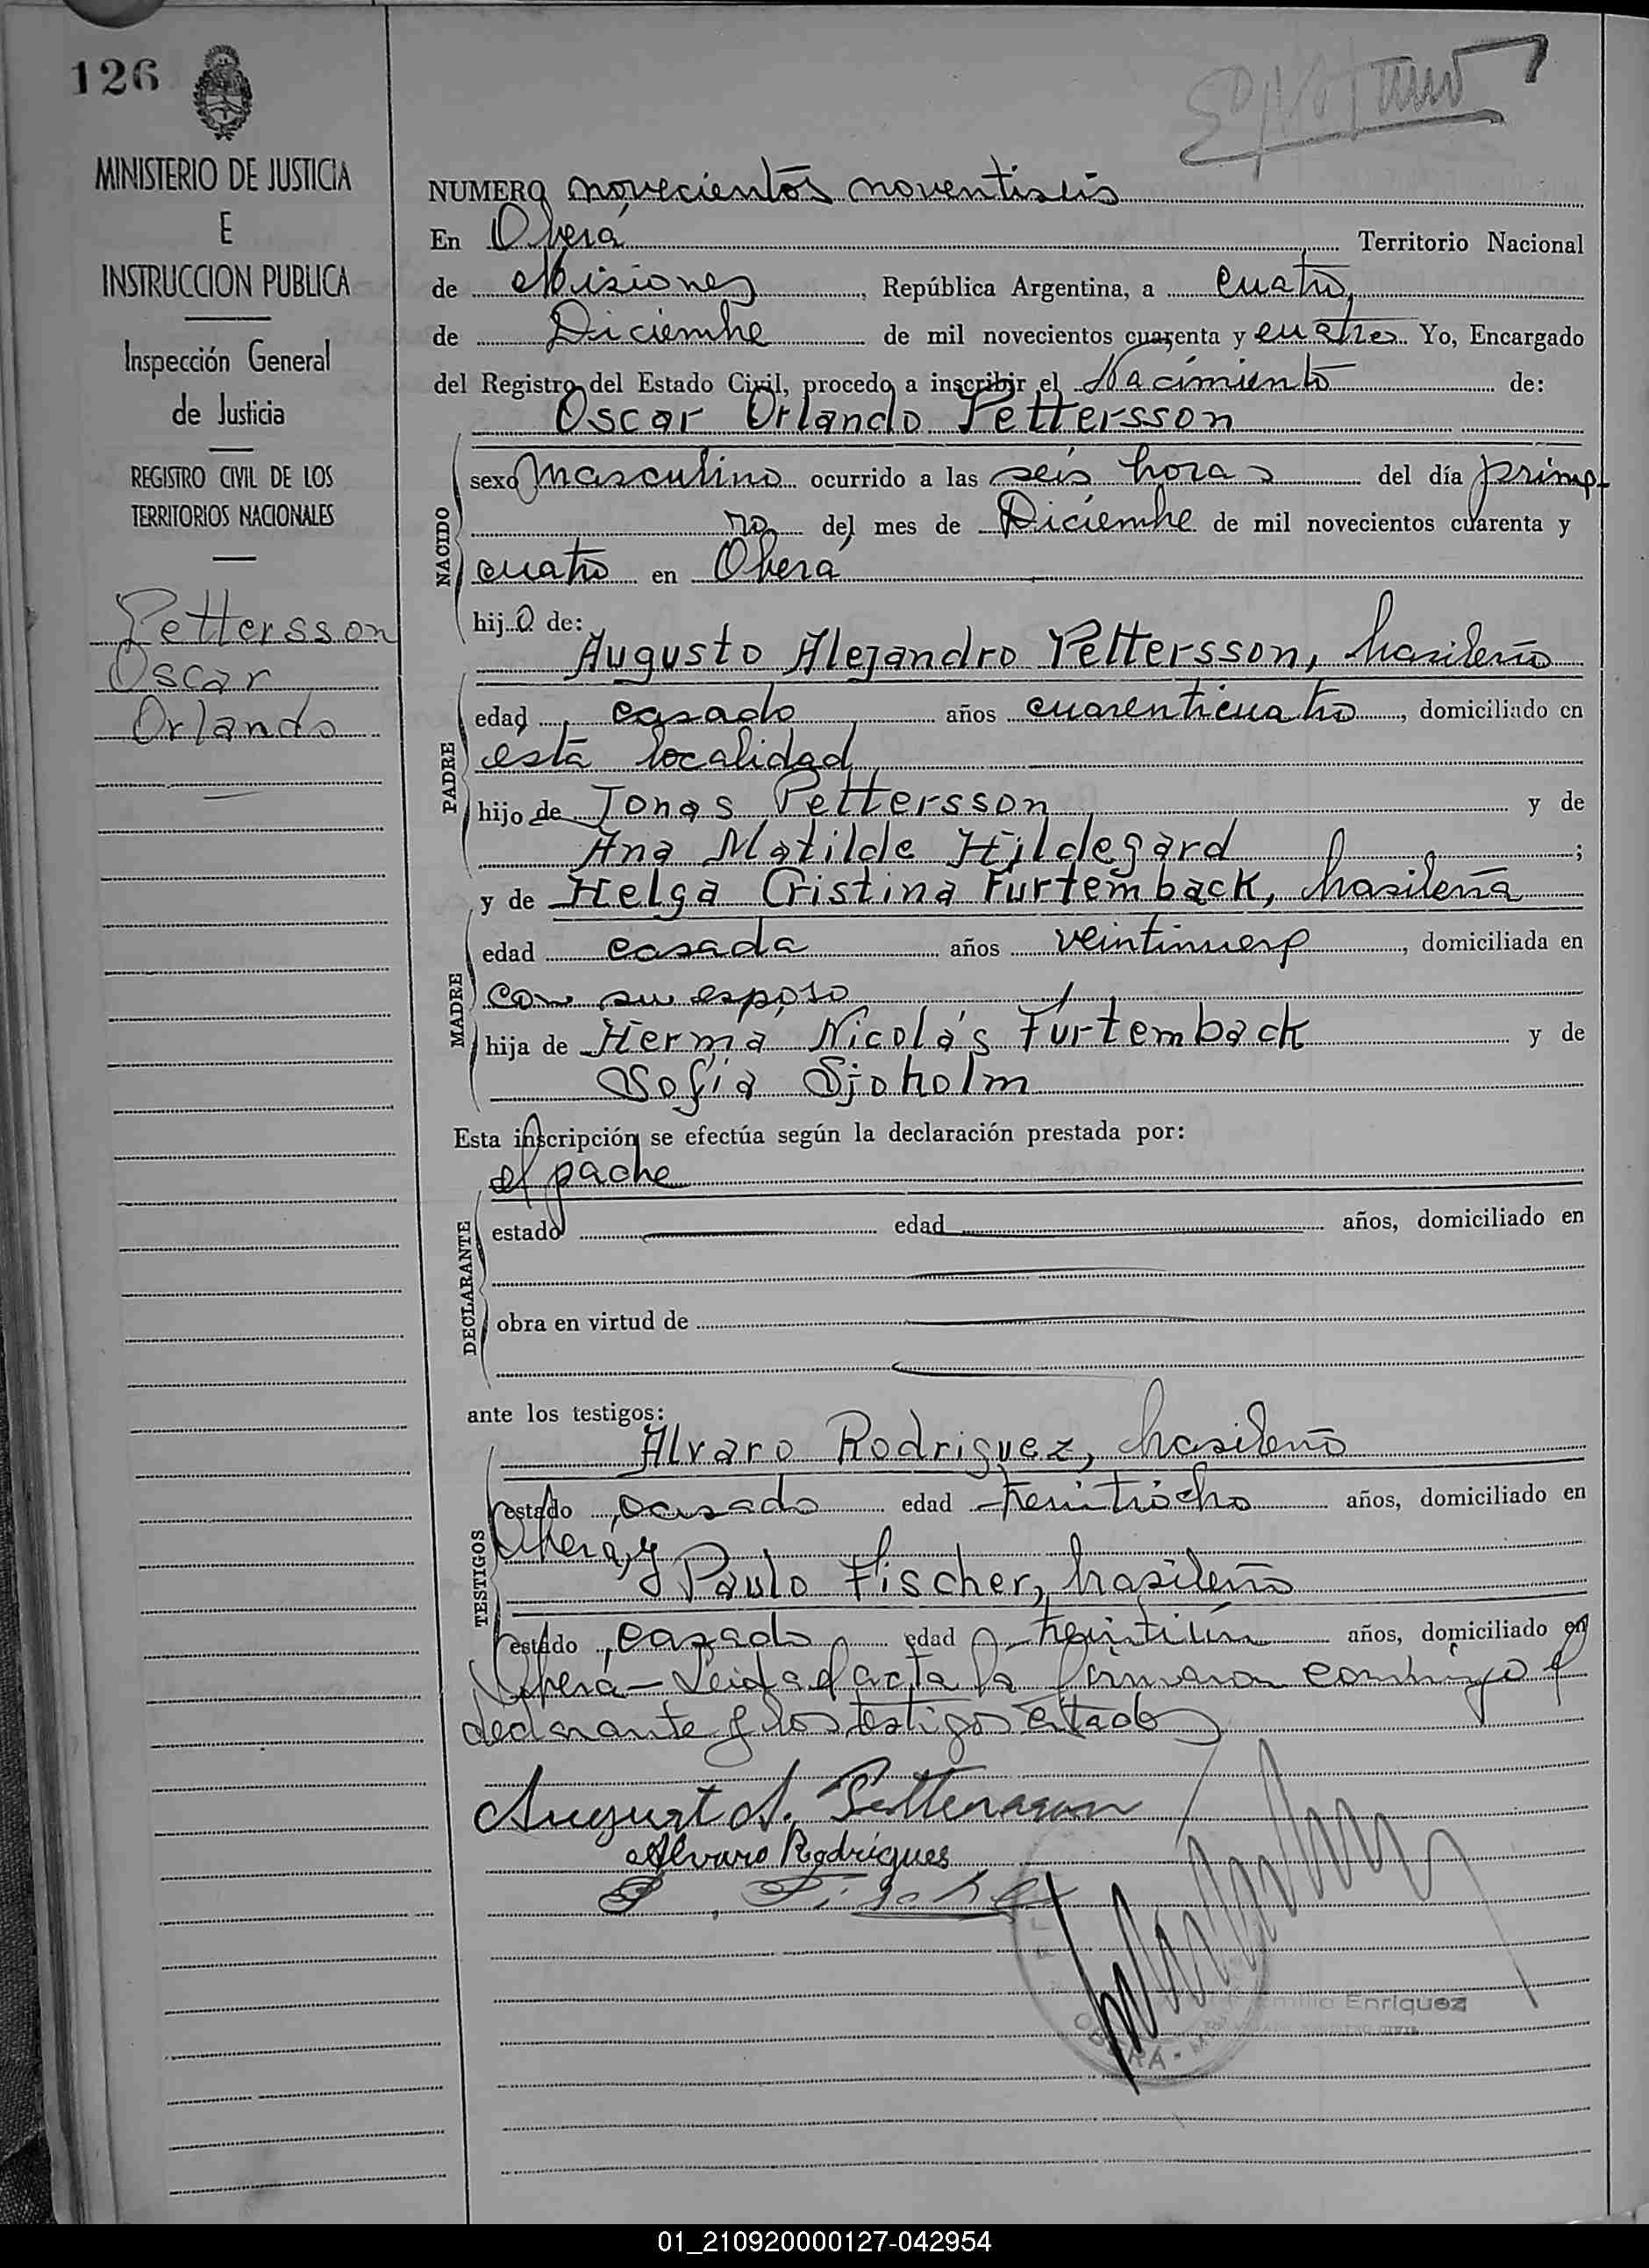 126
MINISTERIO DE JUSTICIA
E
INSTRUCCION PUBLICA
Inspección General
de Justicia
REGISTRO CIVIL DE LOS
TERRITORIOS NACIONALES
Pettersson
Oscar
Orlando
NUMERO novecientos noventiseis
En Oberá Territorio Nacional
de Misiones, República Argentina, a cuatro,
de Diciembre de mil novecientos cuarenta y cuatro. Yo, Encargado
del Registro del Estado Civil, procedo a inscribir el Nacimiento de:
Oscar Orlando Pettersson
NACIDO
sexo masculino ocurrido a las seis horas del día prime-
ro del mes de Diciembre de mil novecientos cuarenta y
cuatro en Oberá
hijo de:
Augusto Alejandro Pettersson, brasileño
PADRE
edad casado años cuarenticuatro, domiciliado en
esta localidad
hijo de Jonas Pettersson y de
Ana Matilde Hildegard ;
y de Helga Cristina Furtemback, brasileña
MADRE
edad casada años veintinueve, domiciliada en
con su esposo
hija de Herma Nicolás Furtemback y de
Sofia Sjoholm
Esta inscripción se efectúa según la declaración prestada por:
el padre
DECLARANTE
estado edad años, domiciliado en
obra en virtud de
ante los testigos:
Alvaro Rodriguez, brasileño
TESTIGOS
estado casado edad treintiocho años, domiciliado en
Oberá, y
Paulo Fischer, brasileño
estado casado edad treintiún años, domiciliado en
Oberá - Leida el acta la firmaron conmigo el
declarante y los testigos citados
August A. Pettersson
Alvaro Rodrigues
P. Fischer
Emilio Enriquez
01_210920000127-042954